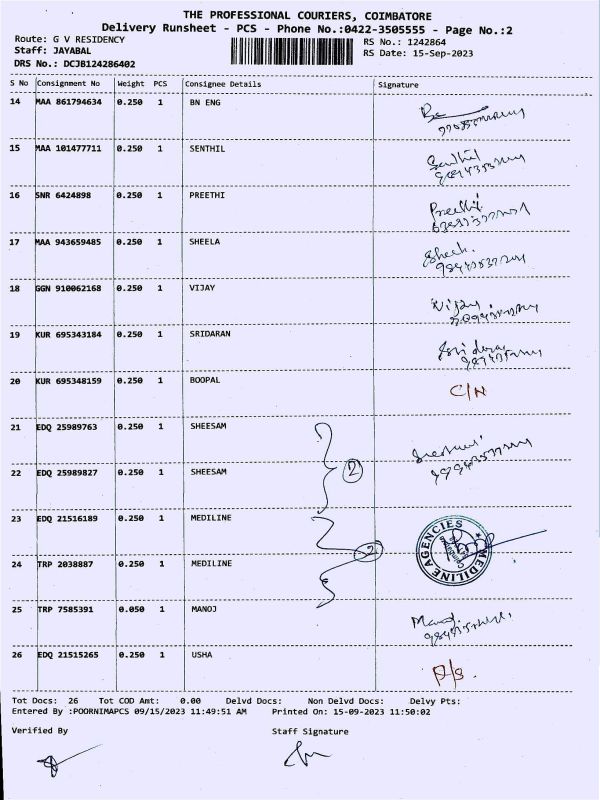 THE PROFESSIONAL COURIERS, COIMBATORE
Delivery Runsheet - PCS - Phone No.:0422-3505555 - Page No.:2
Route: G V RESIDENCY
RS No.: 1242864
Staff: JAYABAL
RS Date: 15-Sep-2023
DRS No.: DCJB124286402
S No Consignment No Weight PCS Consignee Details Signature
14 MAA 861794634 0.250 1 BN ENG
15 MAA 101477711 0.250 1 SENTHIL Senthil
16 SNR 6424898 0.250 1 PREETHI Preethi
17 MAA 943659485 0.250 1 SHEELA Sheela
18 GGN 910062168 0.250 1 VIJAY Vijay
19 KUR 695343184 0.250 1 SRIDARAN
20 KUR 695348159 0.250 1 BOOPAL C/N
21 EDQ 25989763 0.250 1 SHEESAM
2
22 EDQ 25989827 0.250 1 SHEESAM
23 EDQ 21516189 0.250 1 MEDILINE
2 MEDILINE AGENCIES
24 TRP 2038887 0.250 1 MEDILINE
25 TRP 7585391 0.050 1 MANOJ Manoj
26 EDQ 21515265 0.250 1 USHA
Tot Docs: 26 Tot COD Amt: 0.00 Delvd Docs: Non Delvd Docs: Delvy Pts:
Entered By :POORNIMAPCS 09/15/2023 11:49:51 AM Printed On: 15-09-2023 11:50:02
Verified By Staff Signature